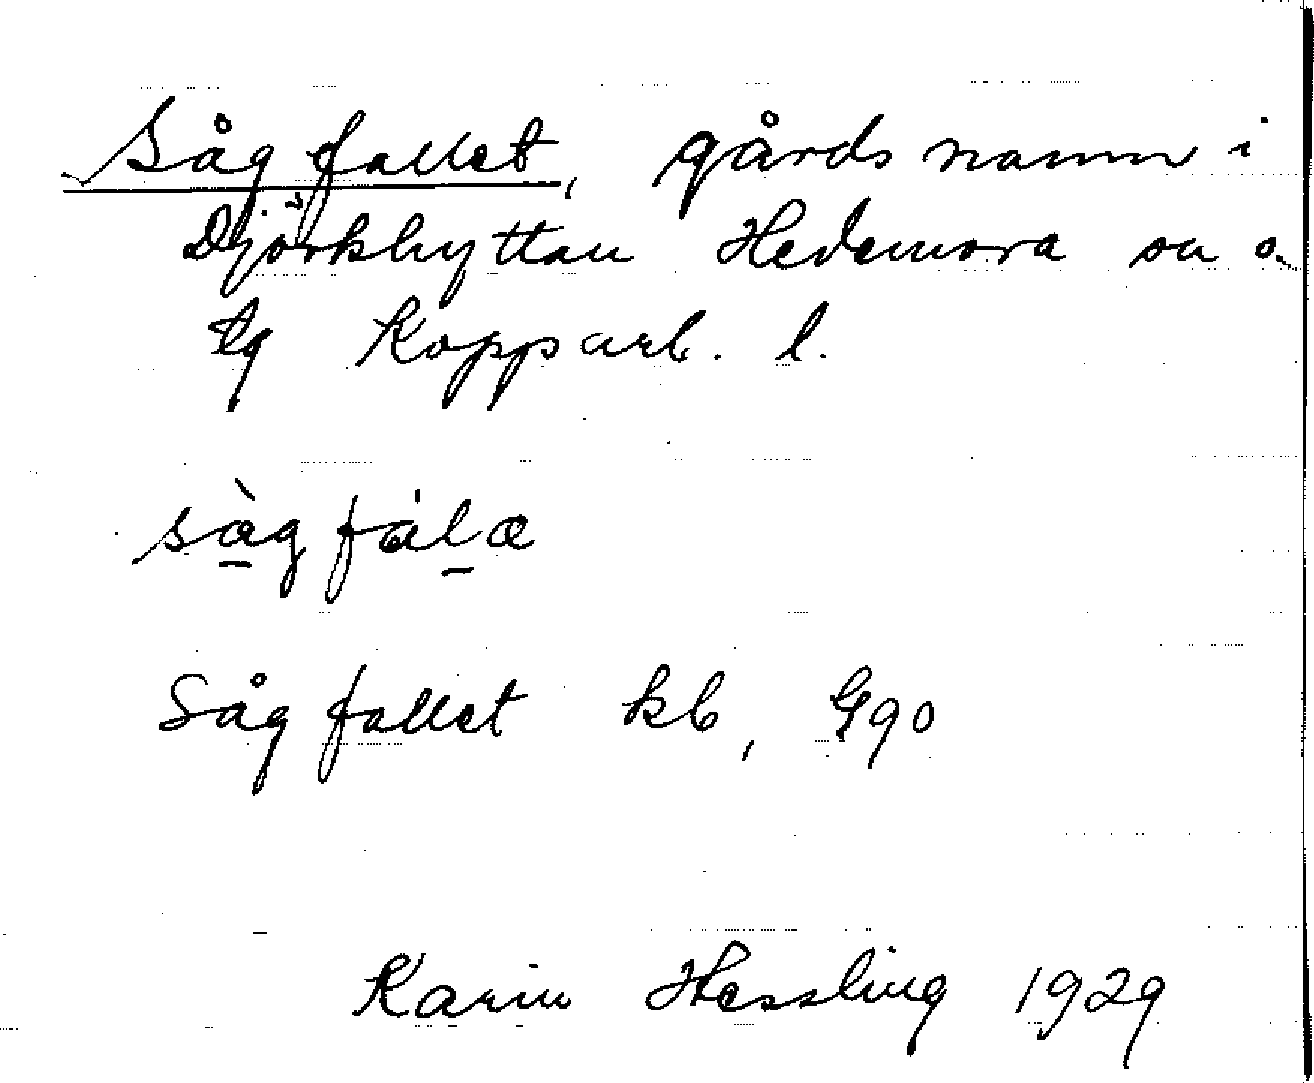 Sågfallet, gårdsnamn i
Djörkhyttan Hedemora sn o.
tg Kopparb. l.
sàgfála
Sågfallet kb, Ggo
Karin Hessling 1929